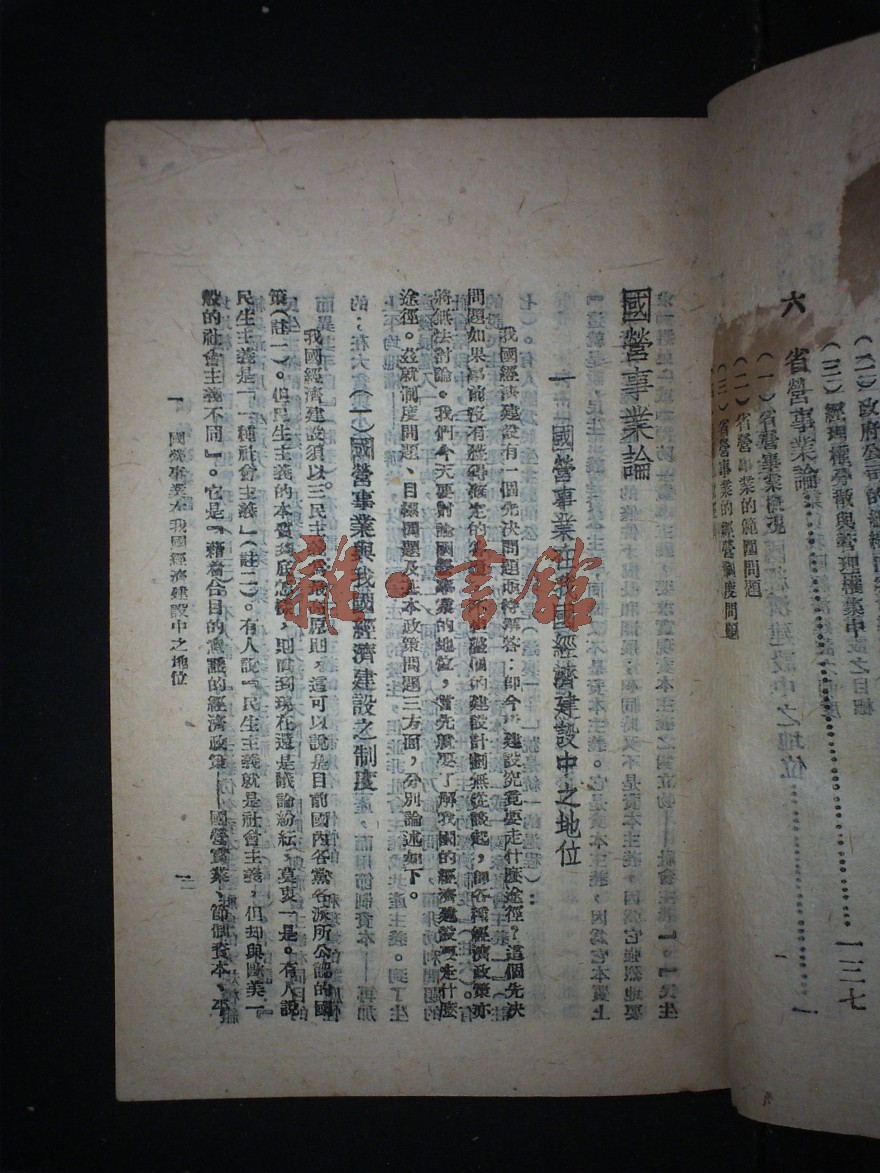 (二)政府公司的
(三)經理權分散與管理權集中
六 省營事業論……一三七
(一)省營事業概況
(二)省營事業的範圍問題
(三)省營事業的經營制度問題
國營事業論
一 國營事業在我國經濟建設中之地位
我國經濟建設有一個先決問題亟待解答:即今後建設究竟要走什麼途徑?這個先決
問題如果事前沒有獲得確定的答案,不但整個的建設計劃無從談起,即各種經濟政策亦
將無法討論。我們今天要討論國營事業的地位,當先須要了解我國的經濟建設要走什麼
途徑。茲就制度問題、目標問題及基本政策問題三方面,分別論述如下。
(一)國營事業與我國經濟建設之制度
我國經濟建設須以三民主義為最高原則,這可以說是目前國內各黨各派所公認的國
策(註一)。但民生主義的本質到底怎樣,則直到現在還是議論紛紜,莫衷一是。有人說
民生主義是「一種社會主義」(註二)。有人說「民生主義就是社會主義,但却與歐美一
般的社會主義不同」。它是「藉着合目的意識的經濟政策——國營實業、節制資本、平
一 國營事業在我國經濟建設中之地位
一
雜·言館